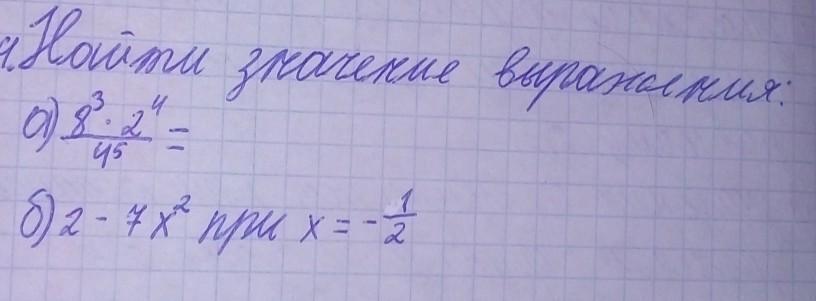 4. Найти значение выражения:
а) 8³ · 2⁴ / 4⁵ =
б) 2 - 7x² при x = - 1/2